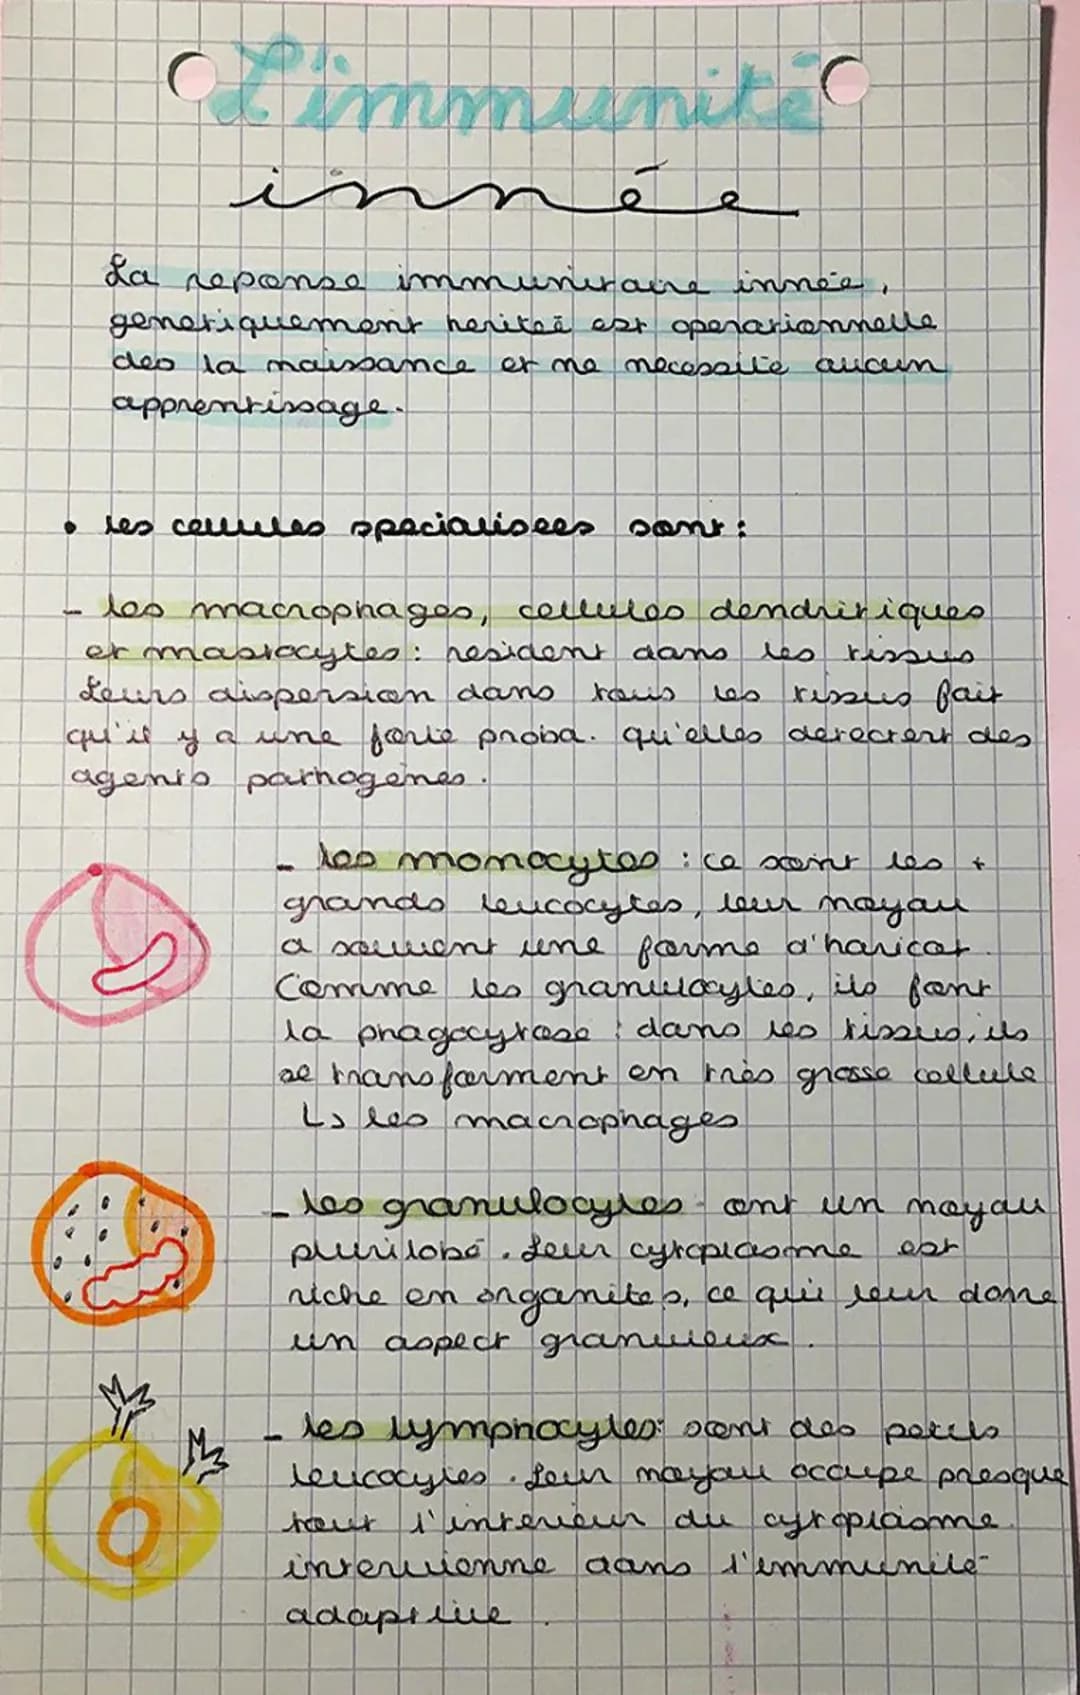 L'immunité
innée
La reponse immunitaire innée,
genetiquement heritée est operationnelle
des la naissance et ne necessite aucun
apprentissage.
• les cellules specialisees sont :
- les macrophages, cellules dendritiques
et mastocytes : resident dans les tissus
Leurs dispersion dans tous les tissus fait
qu'il y a une forte proba. qu'elles detectent des
agents pathogenes.
- les monocytes : ce sont les +
grands leucocytes, leur noyau
a souvent une forme d'haricot.
Comme les granulocytes, ils font
la phagocytose : dans les tissus, ils
se transforment en très grosse cellule
↳ les macrophages
- les granulocytes ont un noyau
plurilobé. Leur cytoplasme est
riche en organites, ce qui leur donne
un aspect granuleux.
- les lymphocytes : sont des petits
leucocytes. Leur noyau occupe presque
tout l'interieur du cytoplasme.
intervienne dans l'immunité
adaptive.